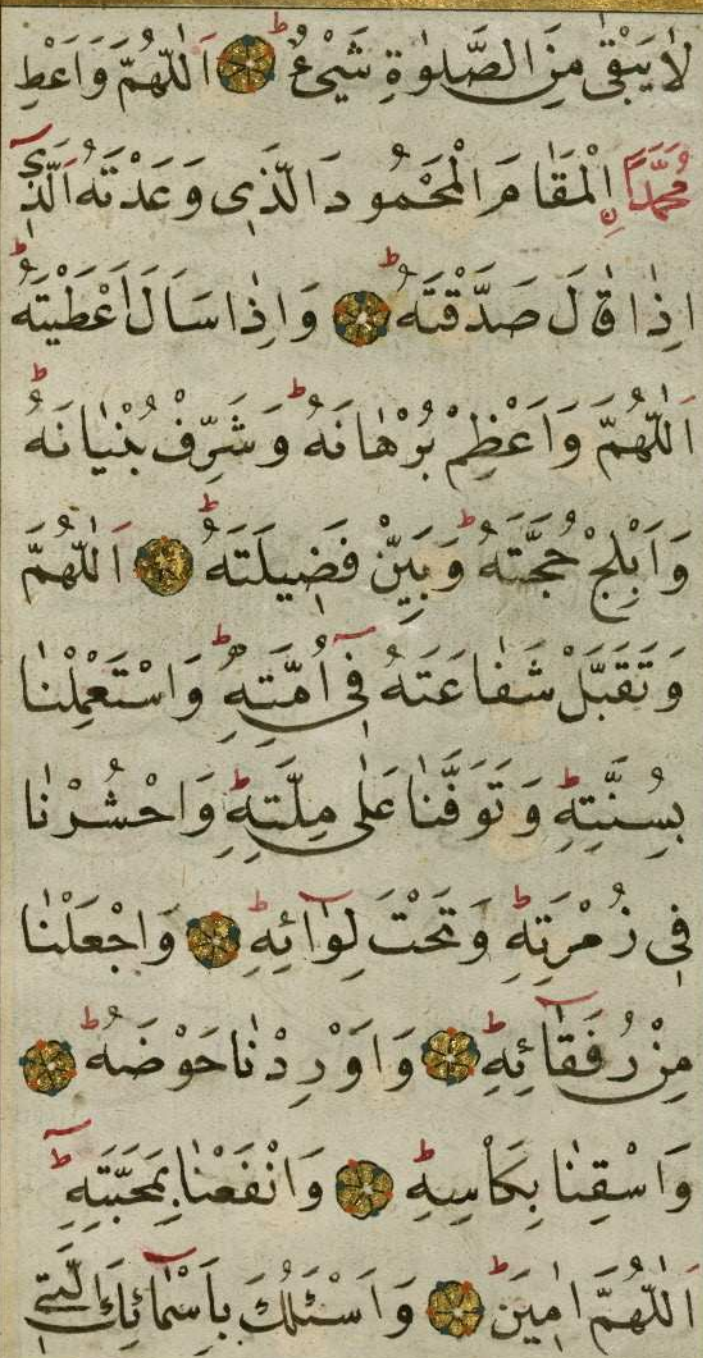 لَا يَبْقٰى مِنَ الصَّلٰوةِ شَيْءٌ ط اَللّٰهُمَّ وَاَعْطِ
مُحَمَّدًا نِ الْمَقَامَ الْمَحْمُودَ الَّذِى وَعَدْتَهُ اَلَّذِى
اِذَا قَالَ صَدَّقْتَهُ ط وَاِذَا سَاَلَ اَعْطَيْتَهُ ط
اَللّٰهُمَّ وَاَعْظِمْ بُرْهَانَهُ ط وَشَرِّفْ بُنْيَانَهُ ط
وَاَبْلِجْ حُجَّتَهُ ط وَبَيِّنْ فَضِيلَتَهُ ط اَللّٰهُمَّ
وَتَقَبَّلْ شَفَاعَتَهُ فِى اُمَّتِهِ ط وَاسْتَعْمِلْنَا
بِسُنَّتِهِ ط وَتَوَفَّنَا عَلٰى مِلَّتِهِ ط وَاحْشُرْنَا
فِى زُمْرَتِهِ ط وَتَحْتَ لِوَآئِهِ ط وَاجْعَلْنَا
مِنْ رُفَقَآئِهِ ط وَاَوْرِدْنَا حَوْضَهُ ط
وَاسْقِنَا بِكَاْسِهِ ط وَانْفَعْنَا بِمَحَبَّتِهِ ط
اَللّٰهُمَّ اٰمِينَ ط وَاَسْئَلُكَ بِاَسْمَآئِكَ الَّتِى